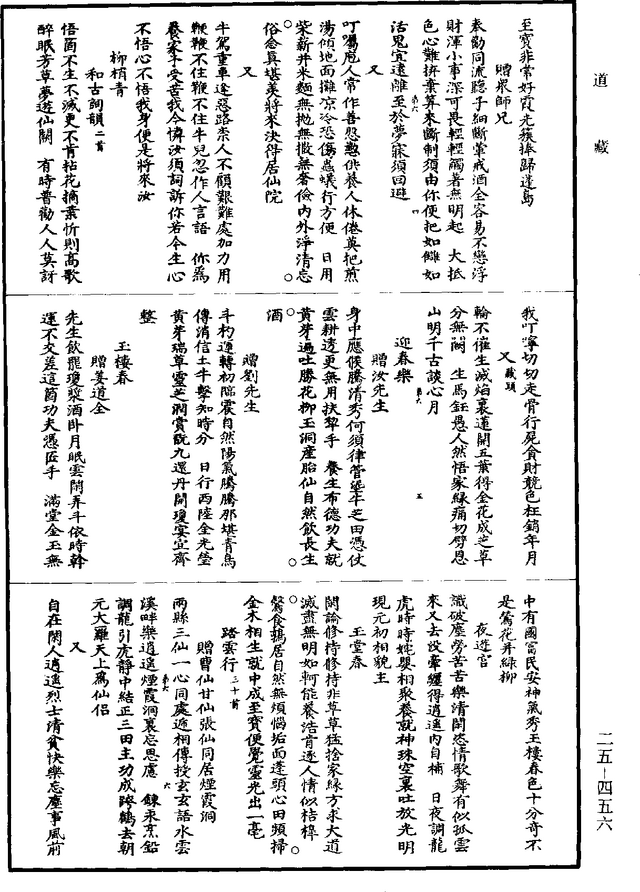 道藏
至寶非常好霞光簇捧歸蓬島
贈眾師兄
奉勸同流隱子細斷葷戒酒全容易不戀浮
財渾小事深可畏輕輕觸著無明起　大抵
色心難拚棄算來斷制須由你便把如讎如
活鬼宜遠離至於夢寐須回避
又
叮囑庖人常作善慇懃供養人休倦莫把煎
湯傾地面攤凉冷恐傷蟲蟻行方便　日用
柴薪并米麵無拋無撒無奢儉內外淨清忘
俗念真堪羨將來決得居仙院
又
牛駕重車逢惡路崇人不顧艱難處加力用
鞭鞭不住鞭不住牛兒忽作人言語　你為
養家予受苦我今憐汝須詞訴你若今生心
不悟心不悟我身便是將來汝
柳梢青
和古詞韻二首
悟箇不生不滅更不肯粘花摘葉忻則高歌
醉眠芳草夢遊仙闕　有時普勸人人莫訝
我叮嚀切切走骨行屍貪財競色枉銷年月
又藏頭
輪不催生滅焰裏蓮開五葉得金花成芝草
分無闕　生馬鈺愚人然悟家緣痛切劈恩
山明千古談心月
迎春樂
贈汝先生
身中應候騰清秀何須律管塗牛芝田憑仗
雲耕透更無用扶犂手　養生布德功夫就
黃芽遍吐勝花柳玉洞產胎仙自然飲長生
酒
贈劉先生
斗杓運轉初臨震自然陽氣騰騰那堪青鳥
傳消信土牛擊知時分　日行西陸金光瑩
黃芽瑞草靈芝潤賞翫九還丹開瓊宴宜齊
整
玉樓春
贈姜道全
先生飲罷瓊漿酒卧月眠雲閑弄斗依時斡
運不交差這箇功夫憑匠手　滿堂金玉無
中有國富民安神氣秀玉樓春色十分奇不
是鶯花并綠柳
夜遊宮
識破塵勞苦苦樂清閑恣情歌舞有似孤雲
來又去沒牽纏得逍遙內自補　日夜調龍
虎時時姹嬰相聚養就神珠空裏吐放光明
現元初相貌主
玉堂春
閑論修持修持非草草猛捨家緣方求大道
滅盡無明如何能養浩肯逐人情似桔槔
鶉食鶉居自然無煩惱垢面蓬頭心田頻掃
金木相生就中成至寶便覺靈光出一毫
踏雲行三十首
贈曹仙甘仙張仙同居煙霞洞
兩縣三仙一心同處遞相傳授玄玄語水雲
溪畔樂逍遙煙霞洞裏忘思慮　鍊汞烹鉛
調龍引虎靜中結正三田主功成跨鶴去朝
元大羅天上為仙侶
又
自在閑人逍遙烈士清貧快樂忘塵事風前
二五－四五六